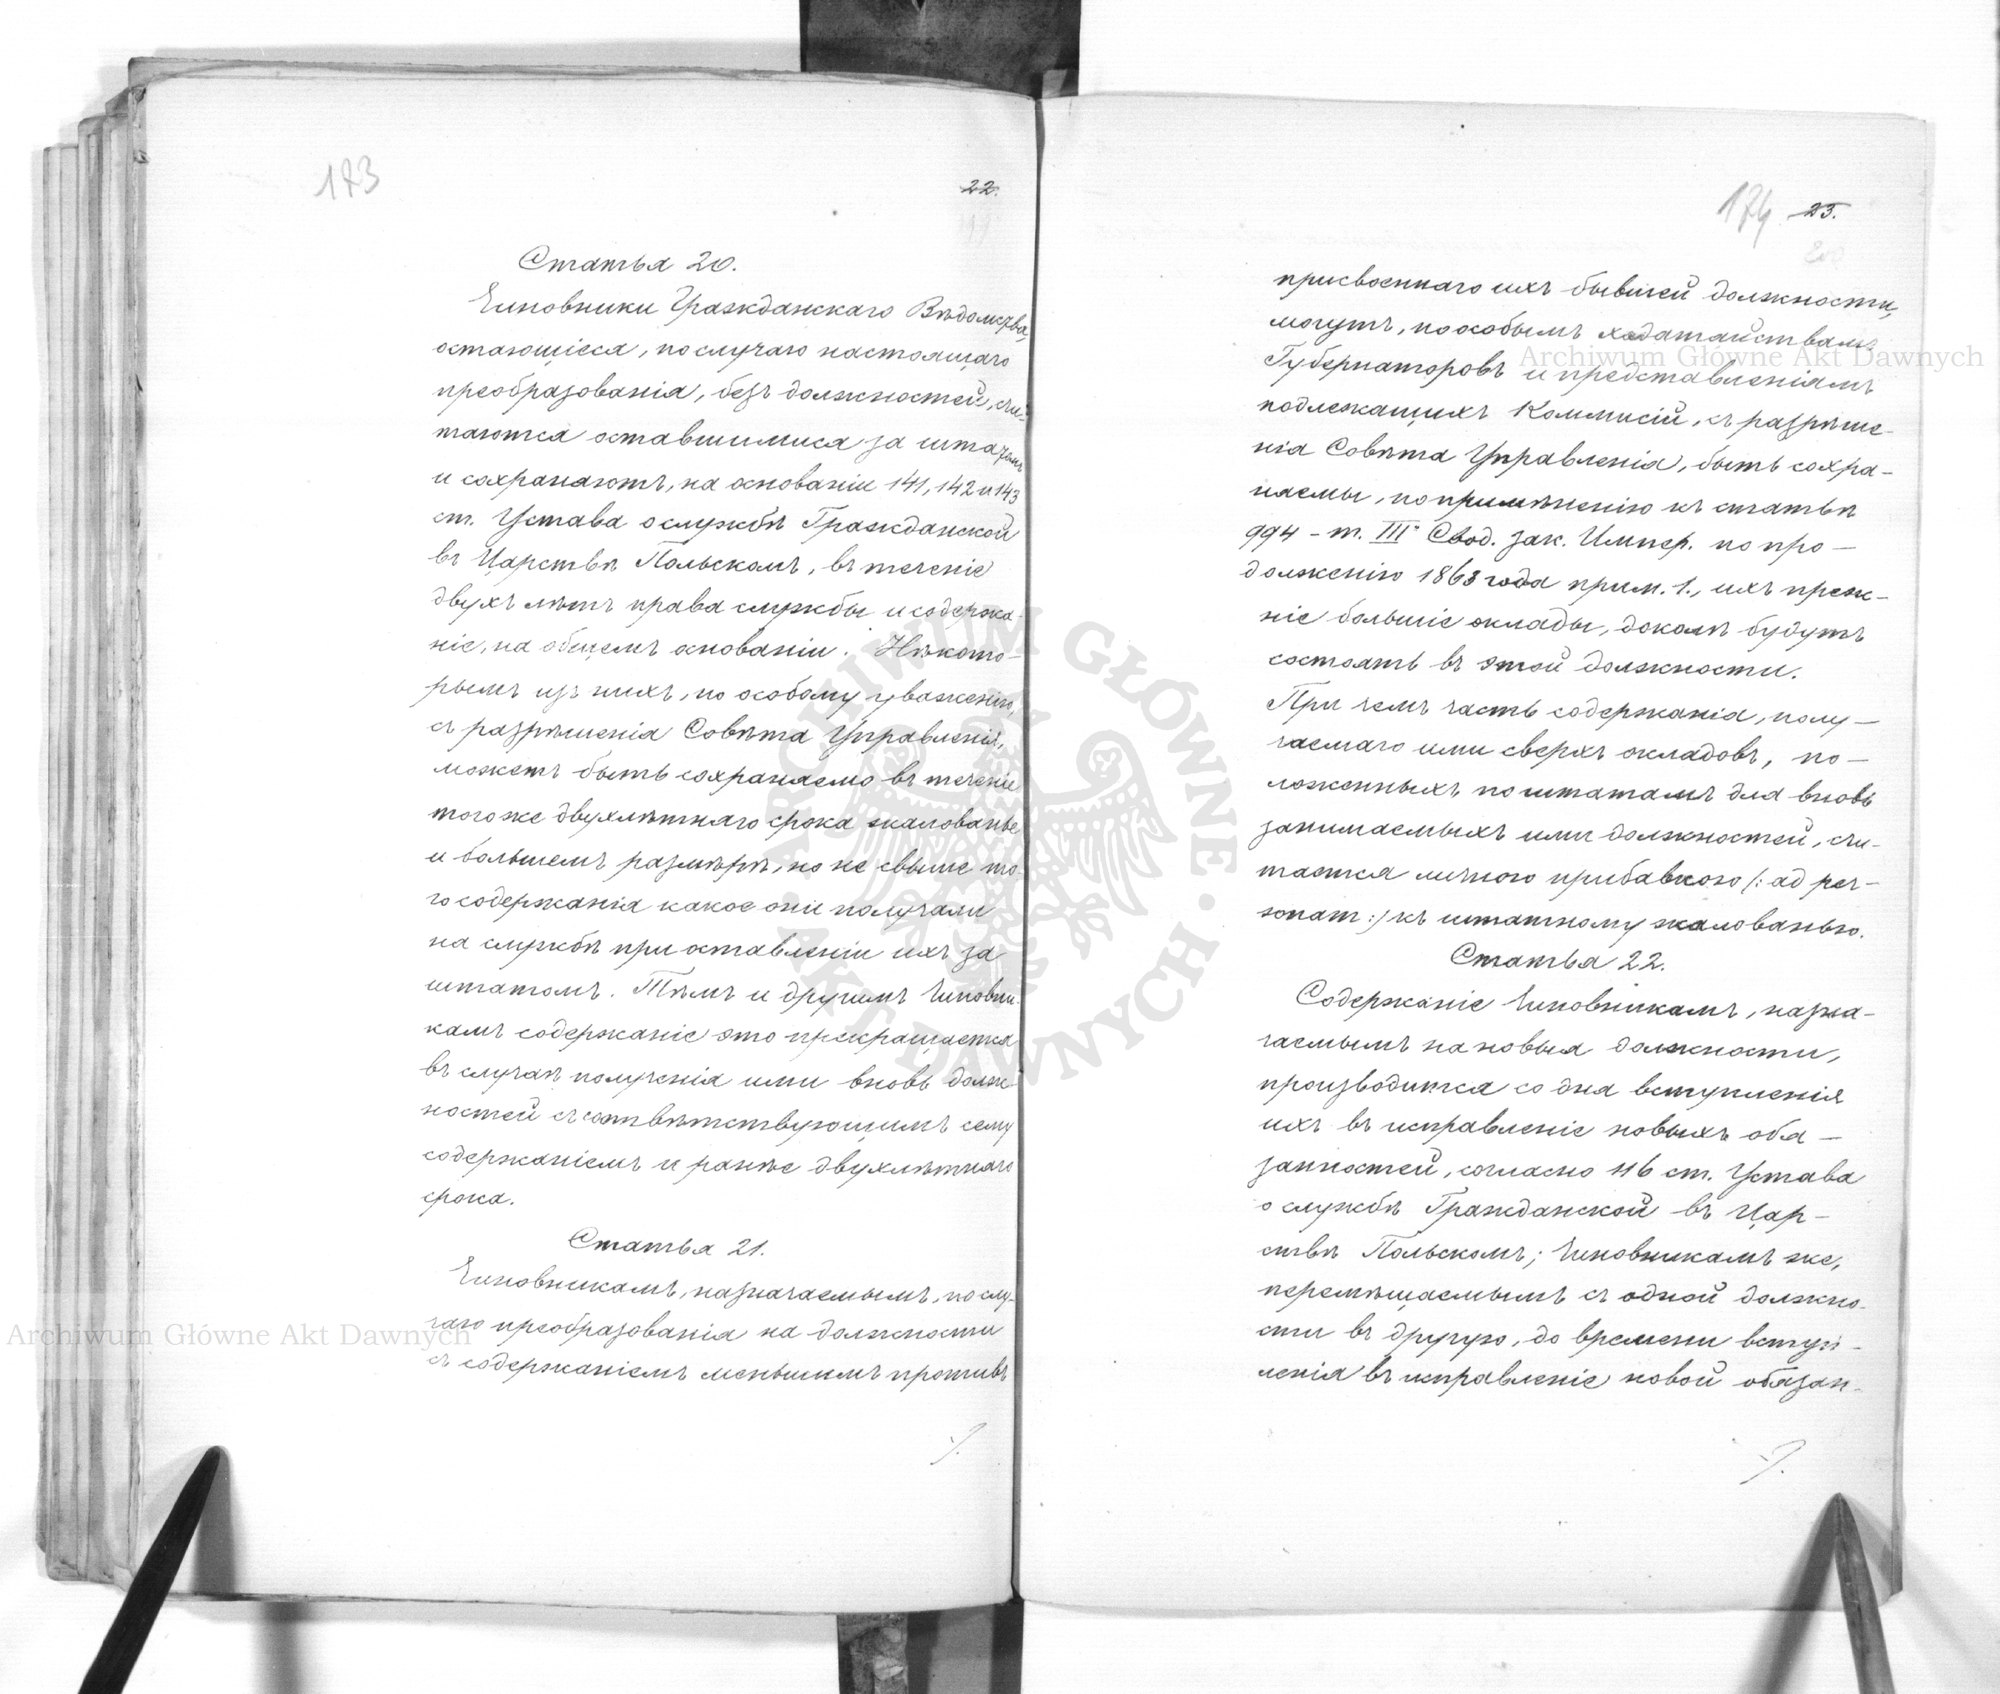 173
22.
Статья 20.
Чиновники Гражданскаго Вѣдомства,
остающіеся, по случаю настоящаго
преобразованія, безъ должностей, счи-
таются оставшимися за штатомъ
и сохраняютъ, на основаніи 141, 142 и 143
ст. Устава о службѣ Гражданской
въ Царствѣ Польскомъ, въ теченіе
двухъ лѣтъ права службы и содержа-
ніе, на общемъ основаніи. Нѣкото-
рымъ изъ нихъ, по особому уваженію,
съ разрѣшенія Совѣта Управленія,
можетъ быть сохраняемо въ теченіе
того же двухлѣтняго срока жалованье
и большемъ размѣрѣ, но не свыше то-
го содержанія какое они получали
на службѣ при оставленіи ихъ за
штатомъ. Тѣмъ и другимъ чиновни-
камъ содержаніе это прекращается
въ случаѣ полученія ими вновь долж-
ностей съ соотвѣтствующимъ сему
содержаніемъ и ранѣе двухлѣтняго
срока.
Статья 21.
Чиновникамъ, назначаемымъ, по слу-
чаю преобразованія на должности
съ содержаніемъ меньшимъ противъ
174
23.
присвоеннаго ихъ бывшей должности,
могутъ, по особымъ ходатайствамъ
Губернаторовъ и представленіямъ
подлежащихъ Коммисій, съ разрѣше-
нія Совѣта Управленія, быть сохра-
няемы, по примѣненію къ статьѣ
994 - т. III Свод. зак. Импер. по про-
долженію 1868 года прим. 1., ихъ преж-
ніе большіе оклады, доколѣ будутъ
состоять въ этой должности.
При чемъ часть содержанія, полу-
чаемаго ими сверхъ окладовъ, по-
ложенныхъ по штатамъ для вновь
занимаемыхъ ими должностей, счи-
тается личною прибавкою /: ad per-
sonam :/ къ штатному жалованью.
Статья 22.
Содержаніе чиновникамъ, назна-
чаемымъ на новыя должности,
производится со дня вступленія
ихъ въ исправленіе новыхъ обя-
занностей, согласно 116 ст. Устава
о службѣ Гражданской въ Цар-
ствѣ Польскомъ; чиновникамъ же,
перемѣщаемымъ съ одной должно-
сти въ другую, до времени вступ-
ленія въ исправленіе новой обязан-
Archiwum Główne Akt Dawnych
Archiwum Główne Akt Dawnych
ARCHIWUM GŁÓWNE AKT DAWNYCH